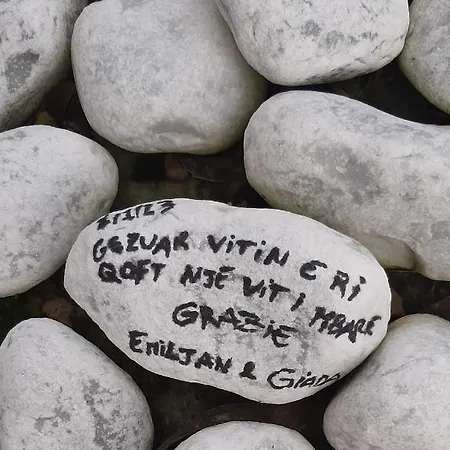 1/1/23
GEZUAR VITIN E RI
QOFT NJË VIT I MBARË
GRAZIE
EMILJAN & GIADA